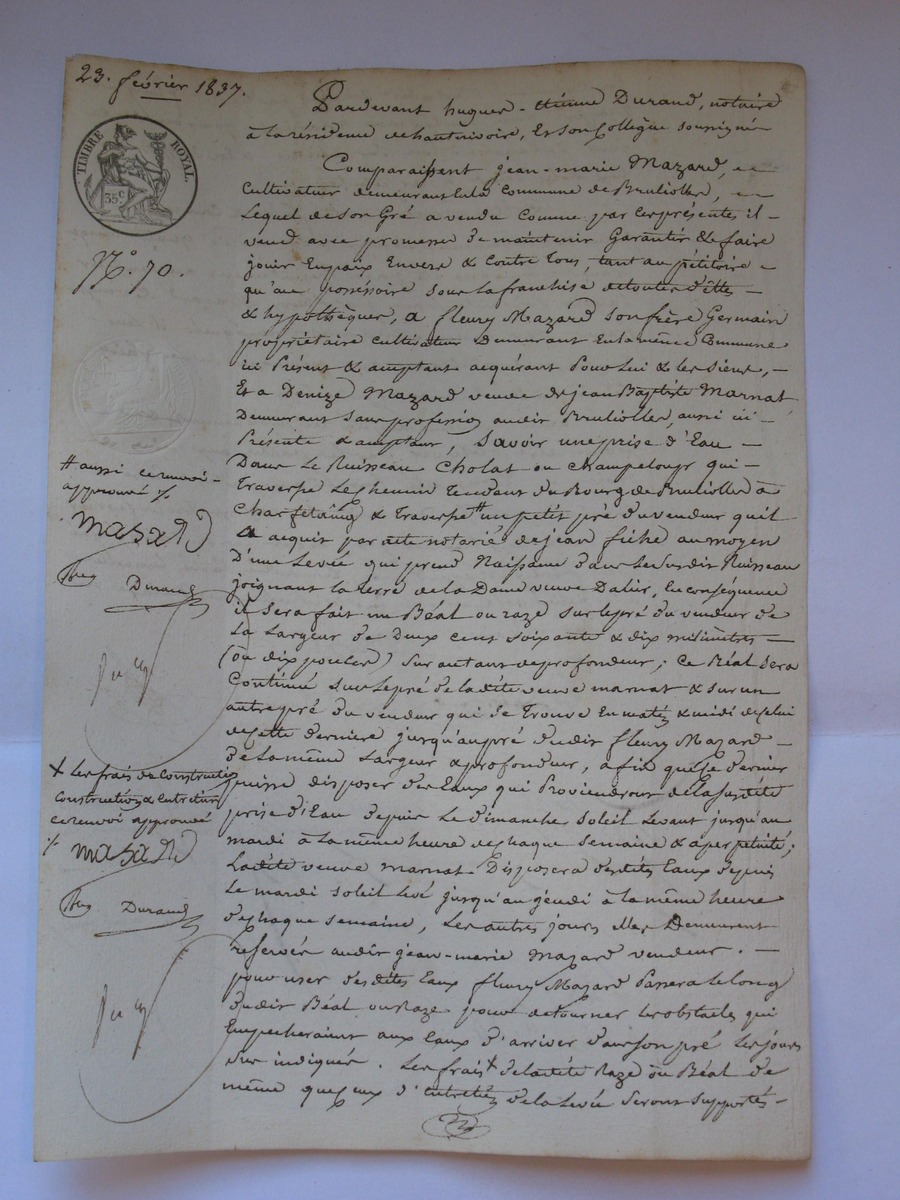 23. février 1837.
TIMBRE ROYAL.
35 C
N.° 70.
Pardevant hugues-étienne Durand, notaire
à la résidence de hauterivoire, Et son Collègue soussignés
Comparaissent jean-marie Mazard,
Cultivateur demeurant en la Commune de Brulliolles,
Lequel de son Gré a vendu Comme par ces présentes il
vend avec promesse de maintenir Garantir & faire
jouir En paix Envers & Contre Tous, tant au pétitoire
qu'au possessoire sous la franchise de toutes dettes
& hypothèques, a fleury Mazard son frère Germain
propriétaire cultivateur Demeurant En la même Commune
ici Présent & acceptant acquérant Pour lui & les siens,
Et a Denize Mazard veuve de jean Baptiste Marnat
Demeurant sans profession audit Brulliolles, aussi ici
Présente & acceptant, Savoir une prise d'Eau
Dans Le Ruisseau Cholat ou Champeloup qui
Traverse Le Chemin Tendant du Bourg de Brulliolles à
& Traverse # un petit pré du vendeur qu'il
a acquit par acte notarié de jean au moyen
D'une Levée qui prend Naissance dans Le susdit Ruisseau
joignant la terre de la Dame veuve En conséquence
il sera fait un Béal ou raze sur le pré du vendeur de
La Largeur de Deux cent soixante & dix milimètres
(ou dix pouces) sur autant de profondeur; ce Béal sera
Continué sur le pré de la dite veuve marnat & sur un
autre pré du vendeur qui se Trouve En matin & midi de celui
de cette dernière jusqu'au pré dudit fleury Mazard
de la même Largeur & profondeur, afin que ce dernier
puisse disposer des Eaux qui Proviendront de la susdite
prise d'Eau depuis Le Dimanche soleil Levant jusqu'au
mardi à la même heure de chaque semaine & à perpétuité;
Ladite veuve marnat Disposera desdites Eaux depuis
Le mardi soleil levé jusqu'au jeudi à la même heure
de chaque semaine, Les autres jours elles Demeurent
reservées audit jean-marie Mazard vendeur.
pour user desdites Eaux fleury Mazard Passera le long
dudit Béal ou Raze pour détourner les obstacles qui
Empecheraient aux Eaux d'arriver dans son pré les jours
sus indiqués. Les frais + de ladite Raze ou Béal de
même que ceux d'entretien de la Levée seront supportés
# aussi ce renvoi
approuvé %
mazard
Durand
+ Les frais de Construction
Construction & entretien
ce renvoi approuvé
%
mazard
Durand